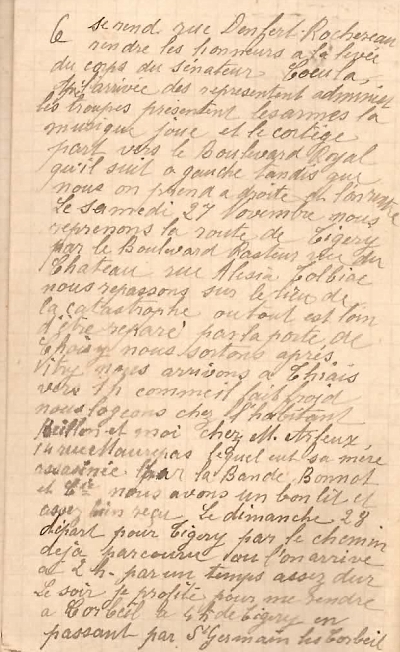 6 se rend rue Denfert-Rochereau
rendre les honneurs a la levée
du corps du Sénateur
l'arrivée des representent
les troupes présentent les armes la
musique joue et le cortège
part vers le Boulevard Royal
qu'il suit a gauche tandis que
nous on prend a droite
Le samedi 27 Novembre nous
reprenons la route de Tigery
par le Boulevard Pasteur rue du
Chateau rue Alésia Tolbiac
nous repassons sur le lieu de
la catastrophe ou tout est loin
d'être reparé par la porte de
Choisy nous sortons après
Vitry nous arrivons a Thiais
vers 1h comme il fait froid
nous logeons chez l'habitant
et moi chez M. Arfeux,
14 rue Maurepas lequel eut sa mère
assasinée par la Bande Bonnot
et Cie nous avons un bon lit et
assez bien reçu Le dimanche 28
départ pour Tigery par le chemin
dejà parcouru ou l'on arrive
a 2h. par un temps assez dur
Le soir je profite pour me rendre
a Corbeil a 4h de Tigery en
passant par St Germain les Corbeil